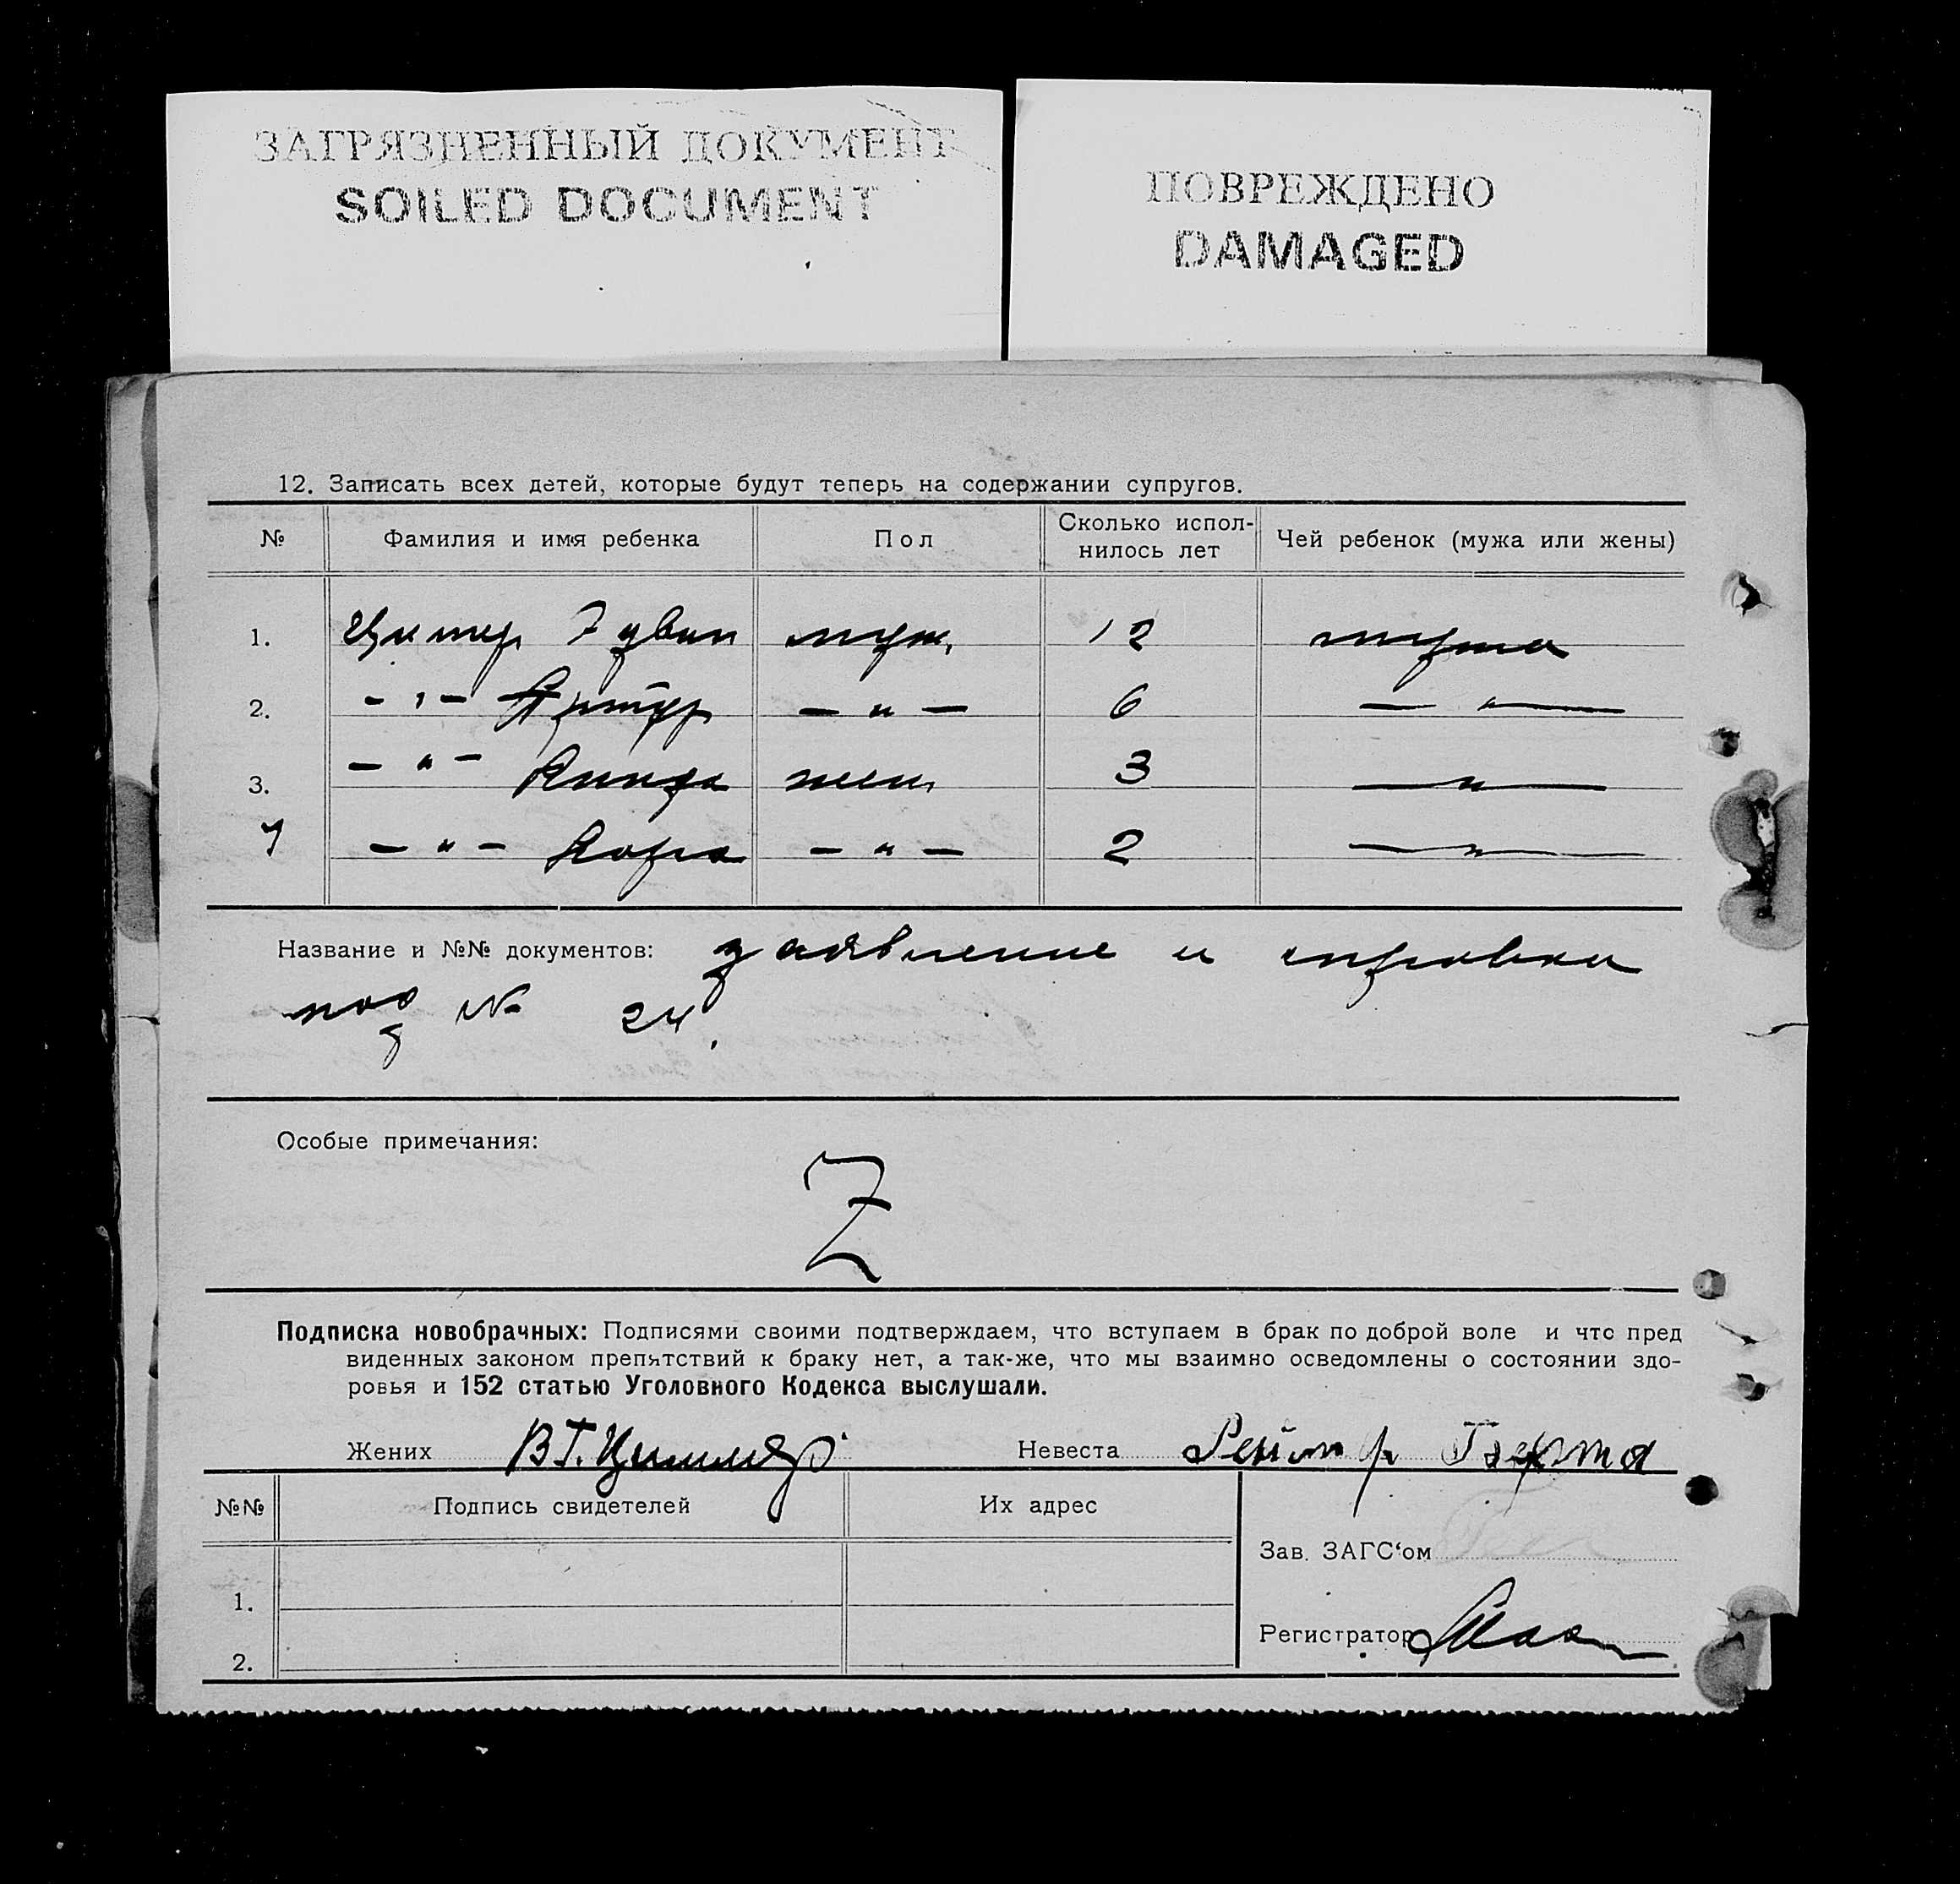 ЗАГРЯЗНЕННЫЙ ДОКУМЕНТ
SOILED DOCUMENT
ПОВРЕЖДЕНО
DAMAGED
12. Записать всех детей, которые будут теперь на содержании супругов.
№ Фамилия и имя ребенка Пол Сколько испол-нилось лет Чей ребенок (мужа или жены)
1. Эдвин муж. 12 мужа
2. - " - Артур — " — 6 — " —
3. - " - жен. 3 — " —
4 - " - — " — 2 — " —
Название и №№ документов: заявление и справка
под № 24.
Особые примечания:
Z
Подписка новобрачных: Подписями своими подтверждаем, что вступаем в брак по доброй воле и что пред
виденных законом препятствий к браку нет, а так-же, что мы взаимно осведомлены о состоянии здо-
ровья и 152 статью Уголовного Кодекса выслушали.
Жених В Г. Невеста Берта
№№ Подпись свидетелей Их адрес
Зав. ЗАГС‘ом
1.
Регистратор
2.